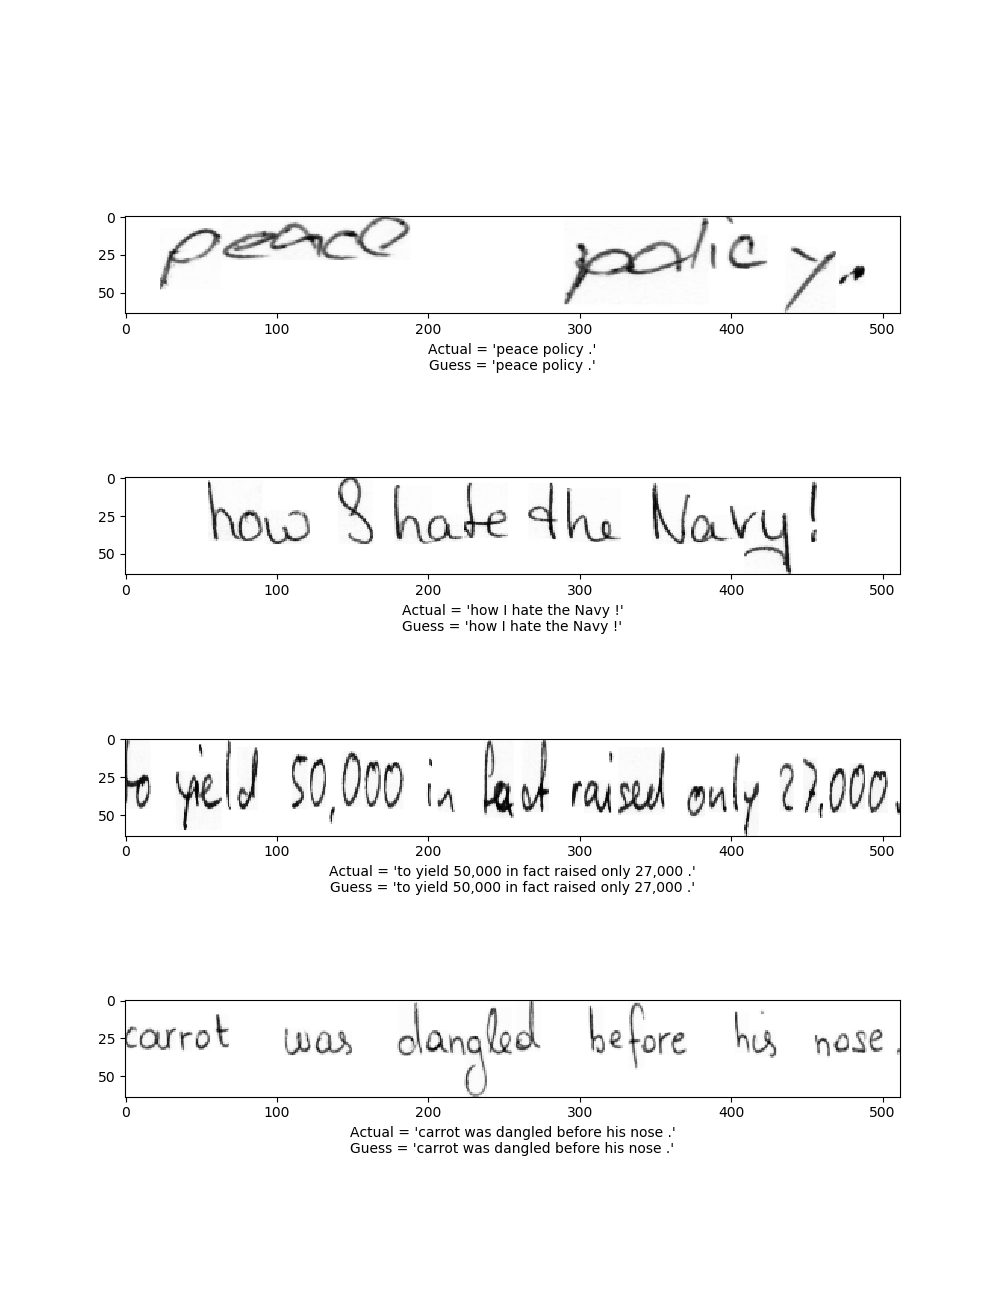 0
25
50
peace policy.
0 100 200 300 400 500
Actual = 'peace policy .'
Guess = 'peace policy .'
0
25
50
how I hate the Navy!
0 100 200 300 400 500
Actual = 'how I hate the Navy !'
Guess = 'how I hate the Navy !'
0
25
50
to yield 50,000 in fact raised only 27,000.
0 100 200 300 400 500
Actual = 'to yield 50,000 in fact raised only 27,000 .'
Guess = 'to yield 50,000 in fact raised only 27,000 .'
0
25
50
carrot was dangled before his nose.
0 100 200 300 400 500
Actual = 'carrot was dangled before his nose .'
Guess = 'carrot was dangled before his nose .'